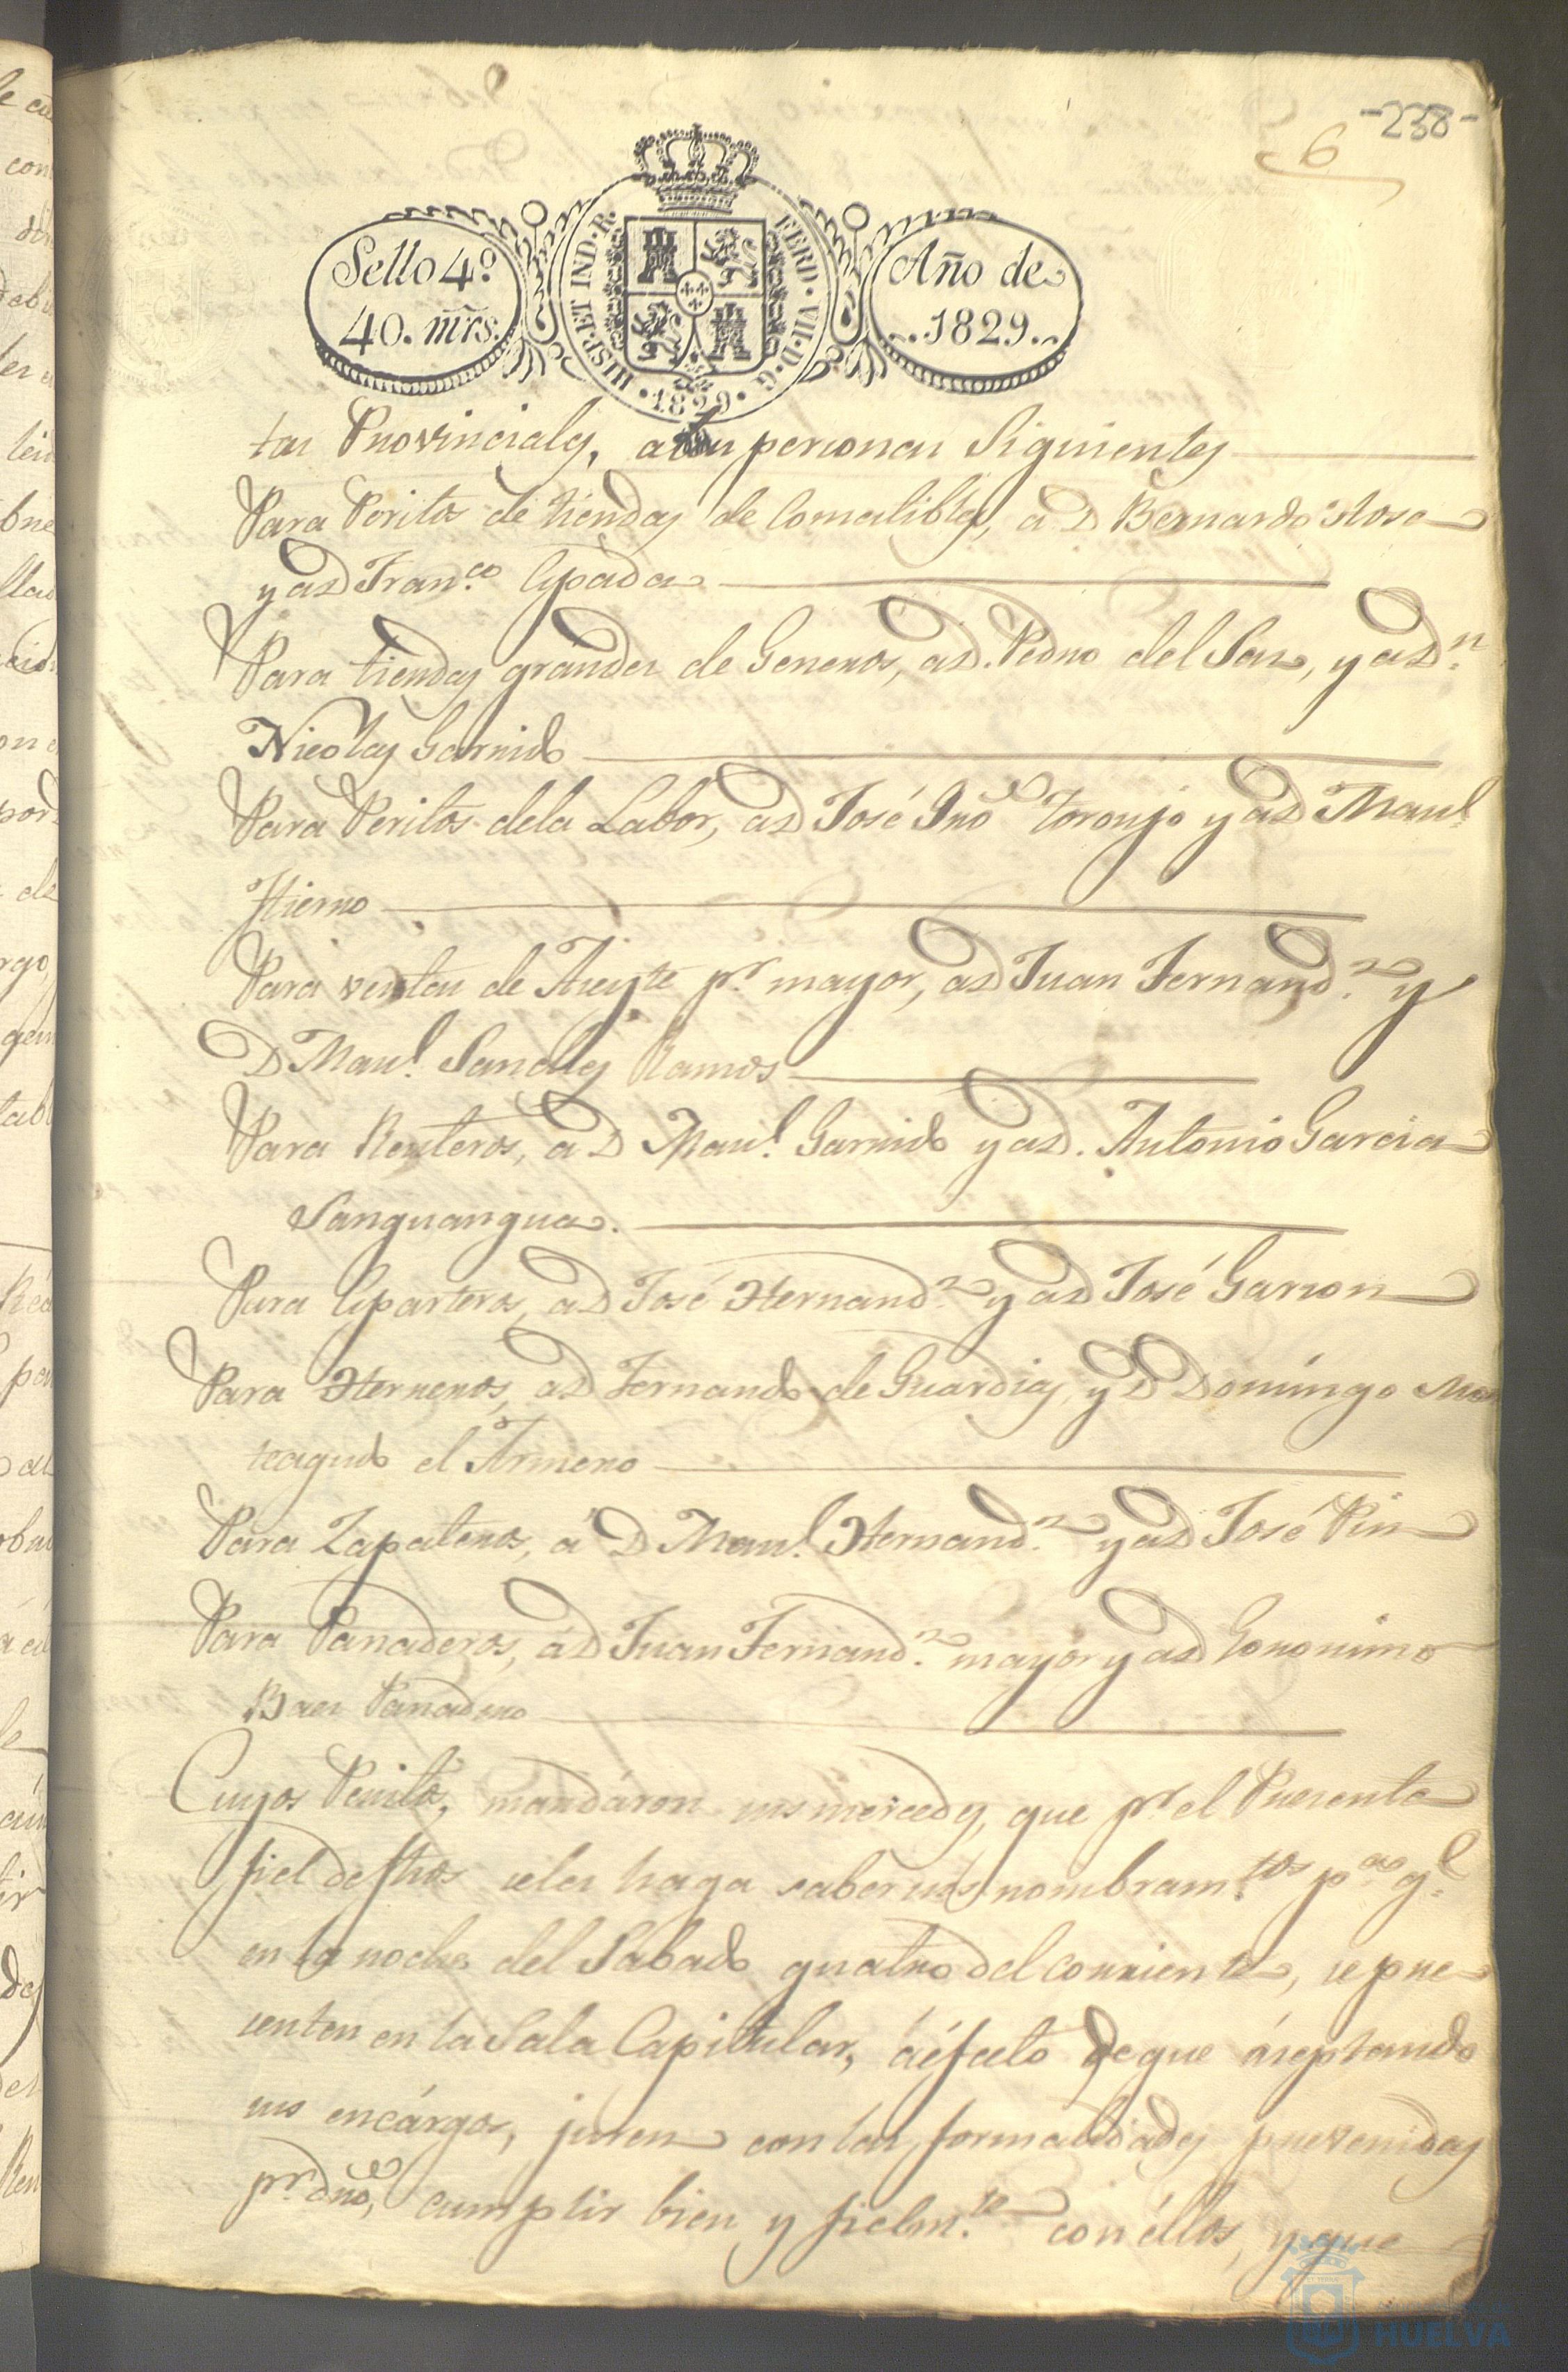 -238-
6
Sello 4º
40. mrs.
HISP. ET IND. R.
FERD. VII. D. G.
· 1829 ·
Año de
1829
tas Provinciales, a las personas Siguientes
Para Peritos de tiendas de Comestibles, a D Bernardo
y a D Franco. Espada
Para tiendas grandes de Generos, a D. Pedro del Saz, y a Dn.
Nicolas Garrido
Para Peritos de la Labor, a D José Toronjo y a D Manl.
Hierro
Para ventas de Aseyte pr. mayor, a D Juan Fernandz. y
D Manl. Sanches Ramos
Para Renteros, a D Manl. Garrido y a D. Antonio Garcia
Sanguangua.
Para Esparteros, a D José Hernandz. y a D José Garzon
Para Herreros, a D Fernando de Guardias, y D Domíngo Mon
teagudo el Armero
Para Zapateros, á D Manl. Hernandz. y a D José Pin
Para Panaderos, á D Juan Fernandz. mayor y a D Geronimo
Baes Panadero
Cuyos Peritos, mandáron sus mercedes, que pr. el Presente
fiel de fhos se les haga saber sus nombramtos. pa. ql.
en la noche del Sabado quatro del corriente, se pre
senten en la Sala Capitular, áéfecto de que áseptando
sus encárgos, juren con las formalidades prevenidas
pr. dro, cumplir bien y fielmte. con éllos, y que
HUELVA